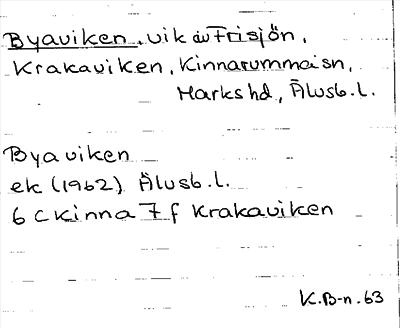 Byaviken, vik av Frisjön,
Krakaviken, Kinnarumma sn,
Marks hd, Älvsb. l.
Byaviken
ek (1962) Älvsb. l.
6 C Kinna 7 f Krakaviken
K.B-n. 63